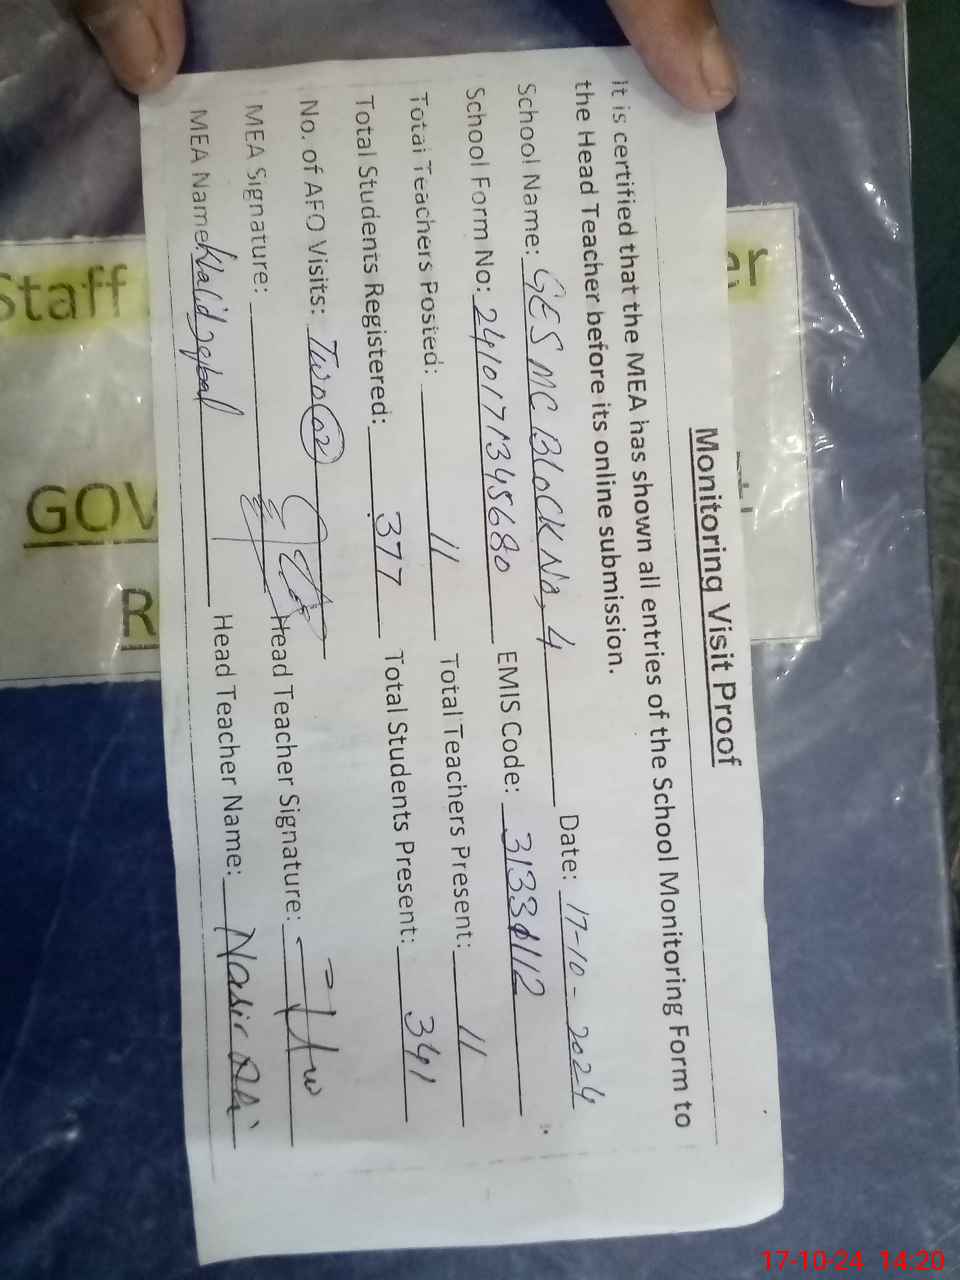 Monitoring Visit Proof
It is certified that the MEA has shown all entries of the School Monitoring Form to
the Head Teacher before its online submission.
School Name: GES MC BLOCK NO, 4 Date: 17-10-2024
School Form No: EMIS Code:
Total Teachers Posted: 11 Total Teachers Present: 11
Total Students Registered: 377 Total Students Present: 341
No. of AFO Visits: Two 02
MEA Signature: Head Teacher Signature:
MEA Name: Walid Iqbal Head Teacher Name: Nasir Ali
Staff
GOV
R
17-10-24 14:20